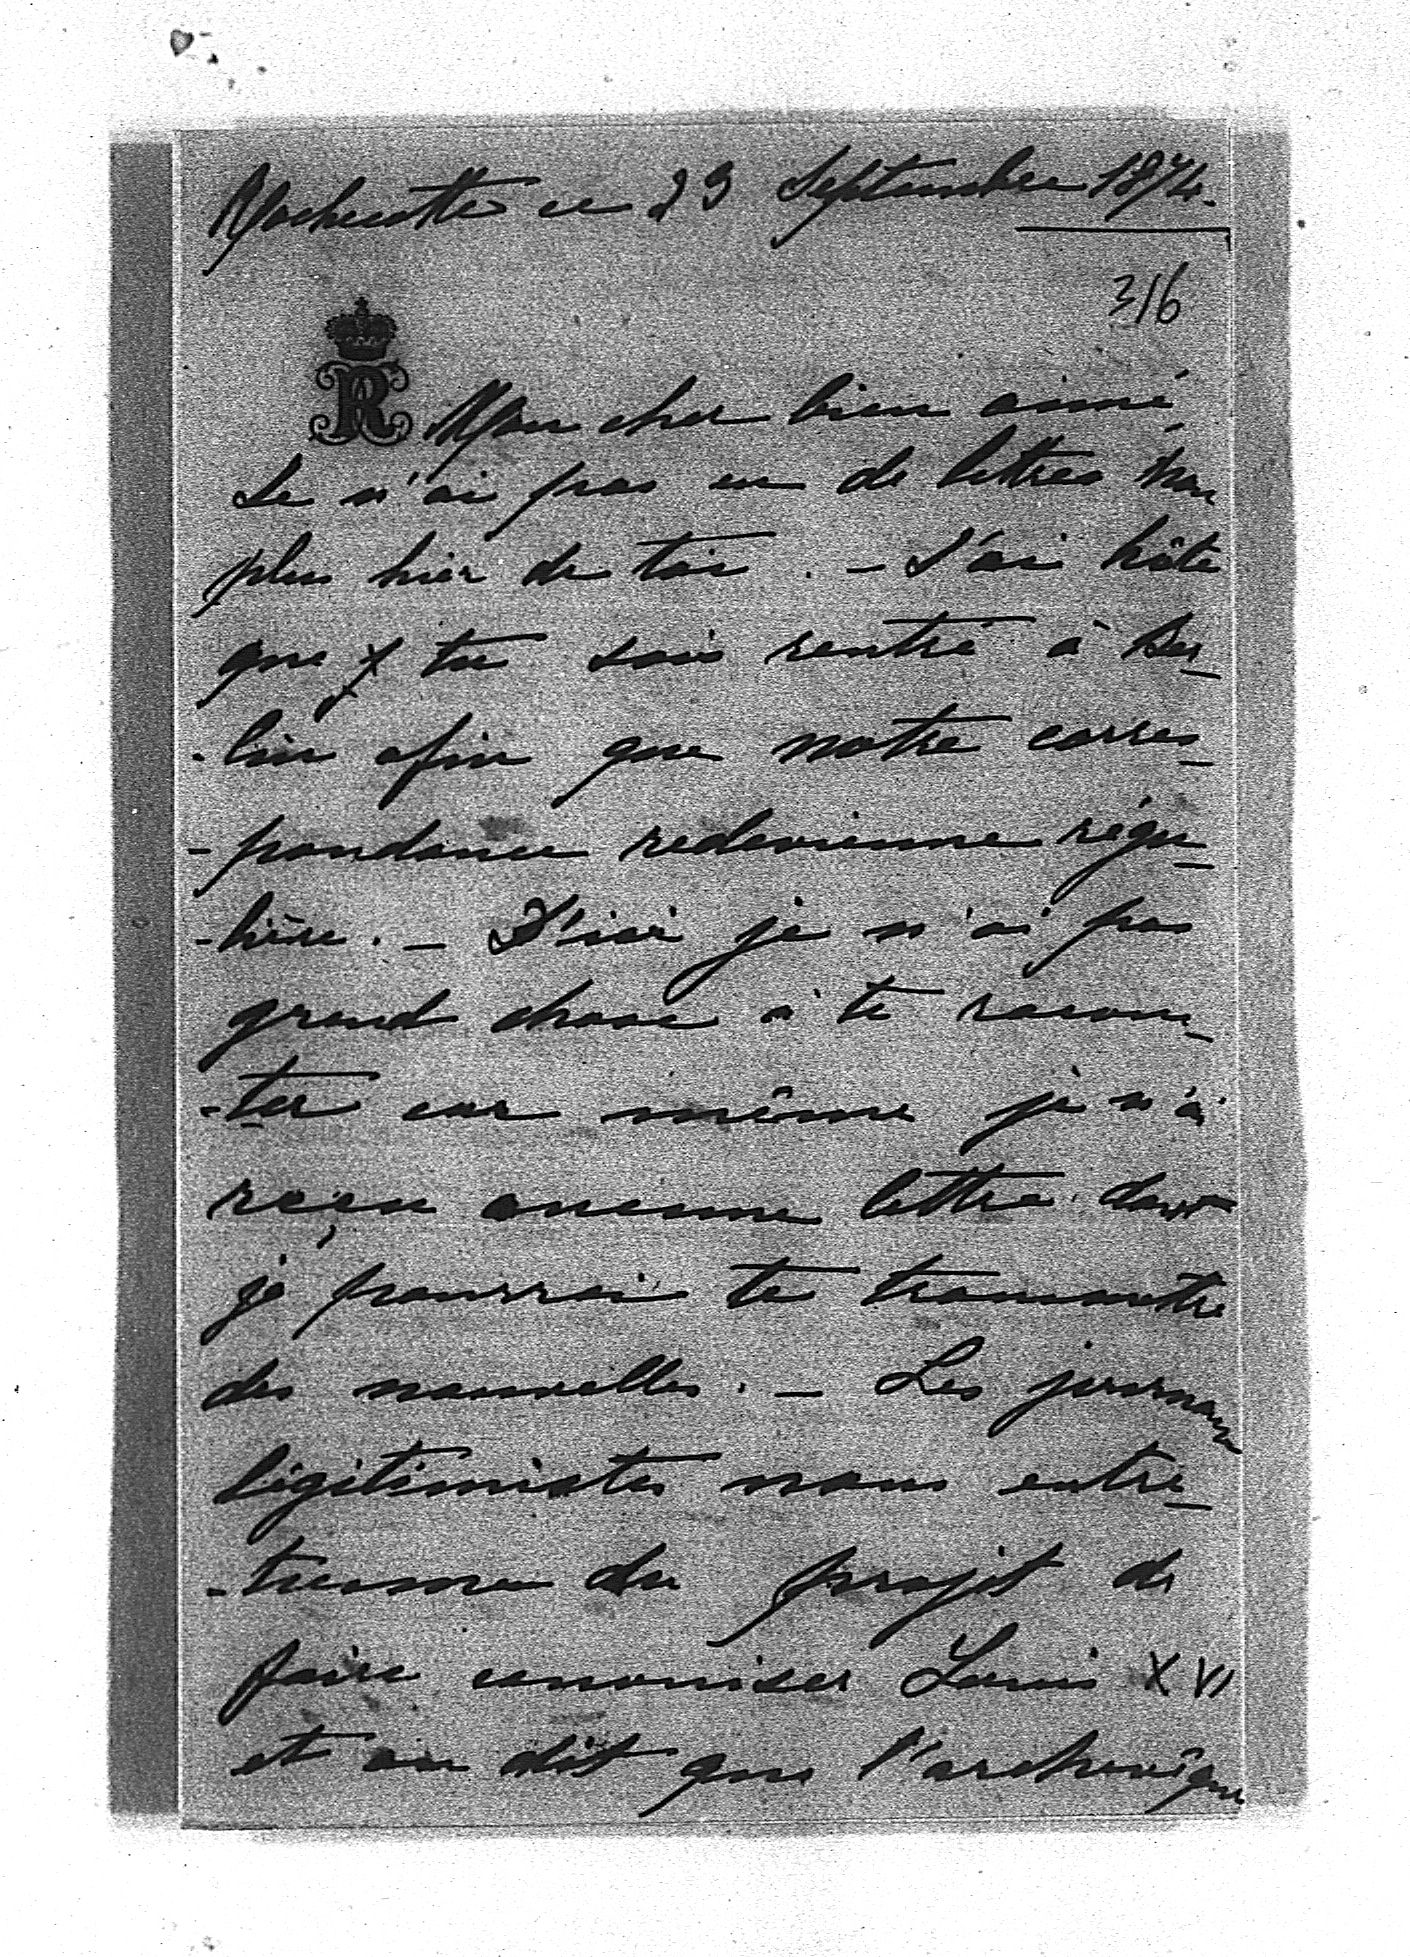 Rochecotte ce 23 Septembre 1874.
316
R
Mon cher bien aimé,
Je n'ai pas eu de lettres non
plus hier de toi. - J'ai hâte
que tu sois rentré à Ber_
-lin afin que notre corres_
-pondance redevienne régu_
-lière. - D'ici je n'ai pas
grand chose à te racon_
-ter car même je n'ai
reçu aucune lettre dont
je pourrai te transmettre
des nouvelles. - Les journaux
légitimistes nous entre_
-tienne du projet de
faire canoniser Louis XVI
et on dit que l'archevêque